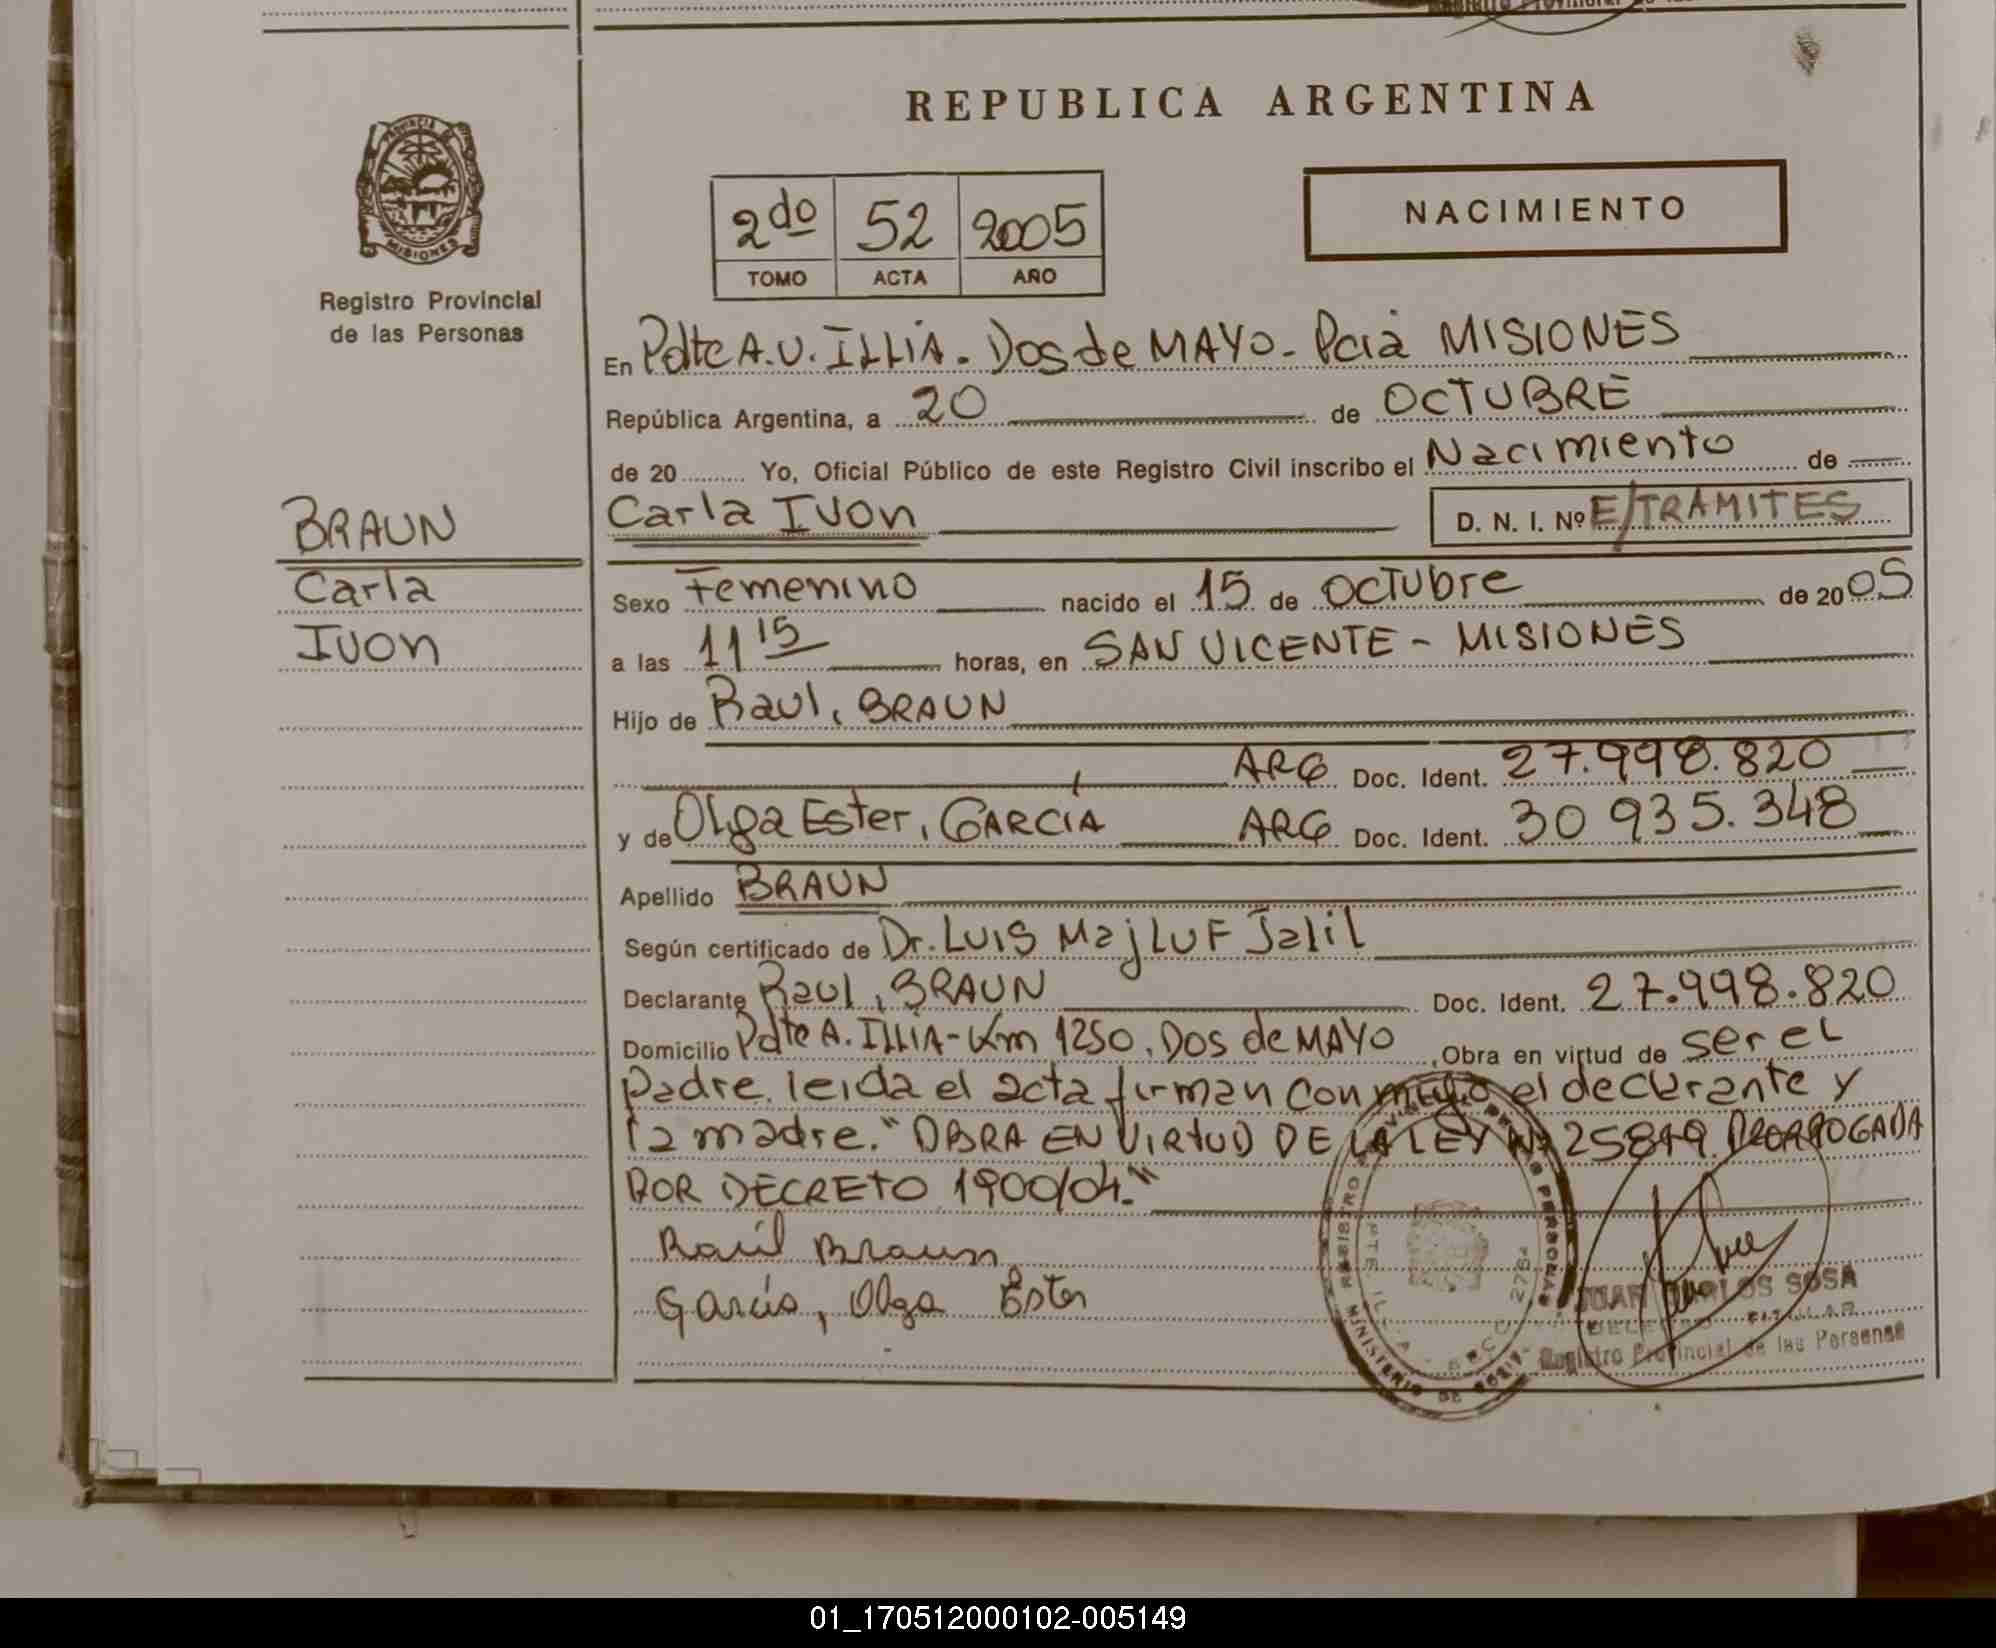 REPUBLICA ARGENTINA
PROVINCIA DE
MISIONES
Registro Provincial
de las Personas
2do 52 2005
TOMO ACTA AÑO
NACIMIENTO
En Pdte A.U. ILLIA. Dos de MAYO - Pcia MISIONES
República Argentina, a 20 de OCTUBRE
de 20 Yo, Oficial Público de este Registro Civil inscribo el Nacimiento de
BRAUN
Carla Ivon
D. N. I. Nº E/TRAMITES
Carla
Sexo Femenino nacido el 15 de OCTUbre de 2005
Ivon
a las 11 15 horas, en SAN VICENTE - MISIONES
Hijo de Raul, BRAUN
ARG Doc. Ident. 27.998.820
y de Olga Ester, GARCÍA ARG Doc. Ident. 30 935.348
Apellido BRAUN
Según certificado de Dr. LUIS MajLUF Jalil
Declarante Raul, BRAUN Doc. Ident. 27.998.820
Domicilio Pdte A. ILLIA - Km 1250. DOS de MAYO, Obra en virtud de ser el
padre. leida el acta firman conmigo el declarante y
la madre. "OBRA EN VIRTUD DE LA LEY Nº 25819 PRORROGADA
POR DECRETO 1900/04."
Raúl Braun
García, Olga Ester
JUAN CARLOS SOSA
TITULAR
Registro Provincial de las Personas
01_170512000102-005149